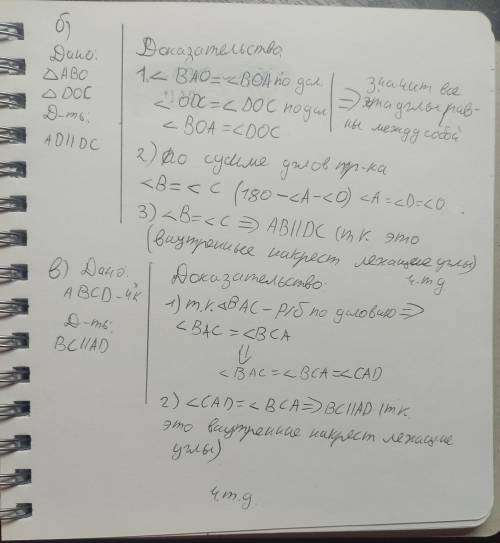 б)
Дано:
△ABO
△DOC
Д-ть:
AD||DC
Доказательства
1. < BAO = <BOA по усл
< ODC = <DOC по усл
< BOA = <DOC
=> значит все
эти углы рав-
ны между собой
2) По сумме углов тр-ка
<B = < C (180 - <A - <O) <A = <D = <O.
3) <B = < C => AB||DC (т.к. это
(внутренные накрест лежащие углы)
ч.т.д
в) Дано:
ABCD - 4к
Д-ть:
BC||AD
Доказательство:
1) т.к. <BAC - р/б по условию =>
<BAC = <BCA
⇓
<BAC = <BCA = <CAD
2) <CAD = <BCA => BC||AD (т.к.
это внутренние накрест лежащие
углы)
ч.т.д.